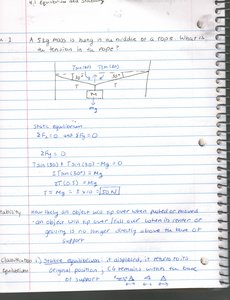 4.1 Equilibrium and Stability
A 5 kg mass is hung in the middle of a rope. What is
the tension in the rope?
Tsin(30) Tsin(30)
30° 30°
T T
M
Mg
Static Equilibrium
ΣFx = 0 and ΣFy = 0
ΣFy = 0
Tsin(30) + Tsin(30) - Mg = 0
2Tsin(30) = Mg
2T(0.5) = Mg
T = Mg = 5 × 10 = 50N
Stability How likely an object will tip over when pushed or moved
- an object will tip over/fall over when its center of
gravity is no longer directly above the base of
support
Classification 1) Stable equilibrium: if displaced, it returns to its
Equilibrium original position, CG remains within the base
of support